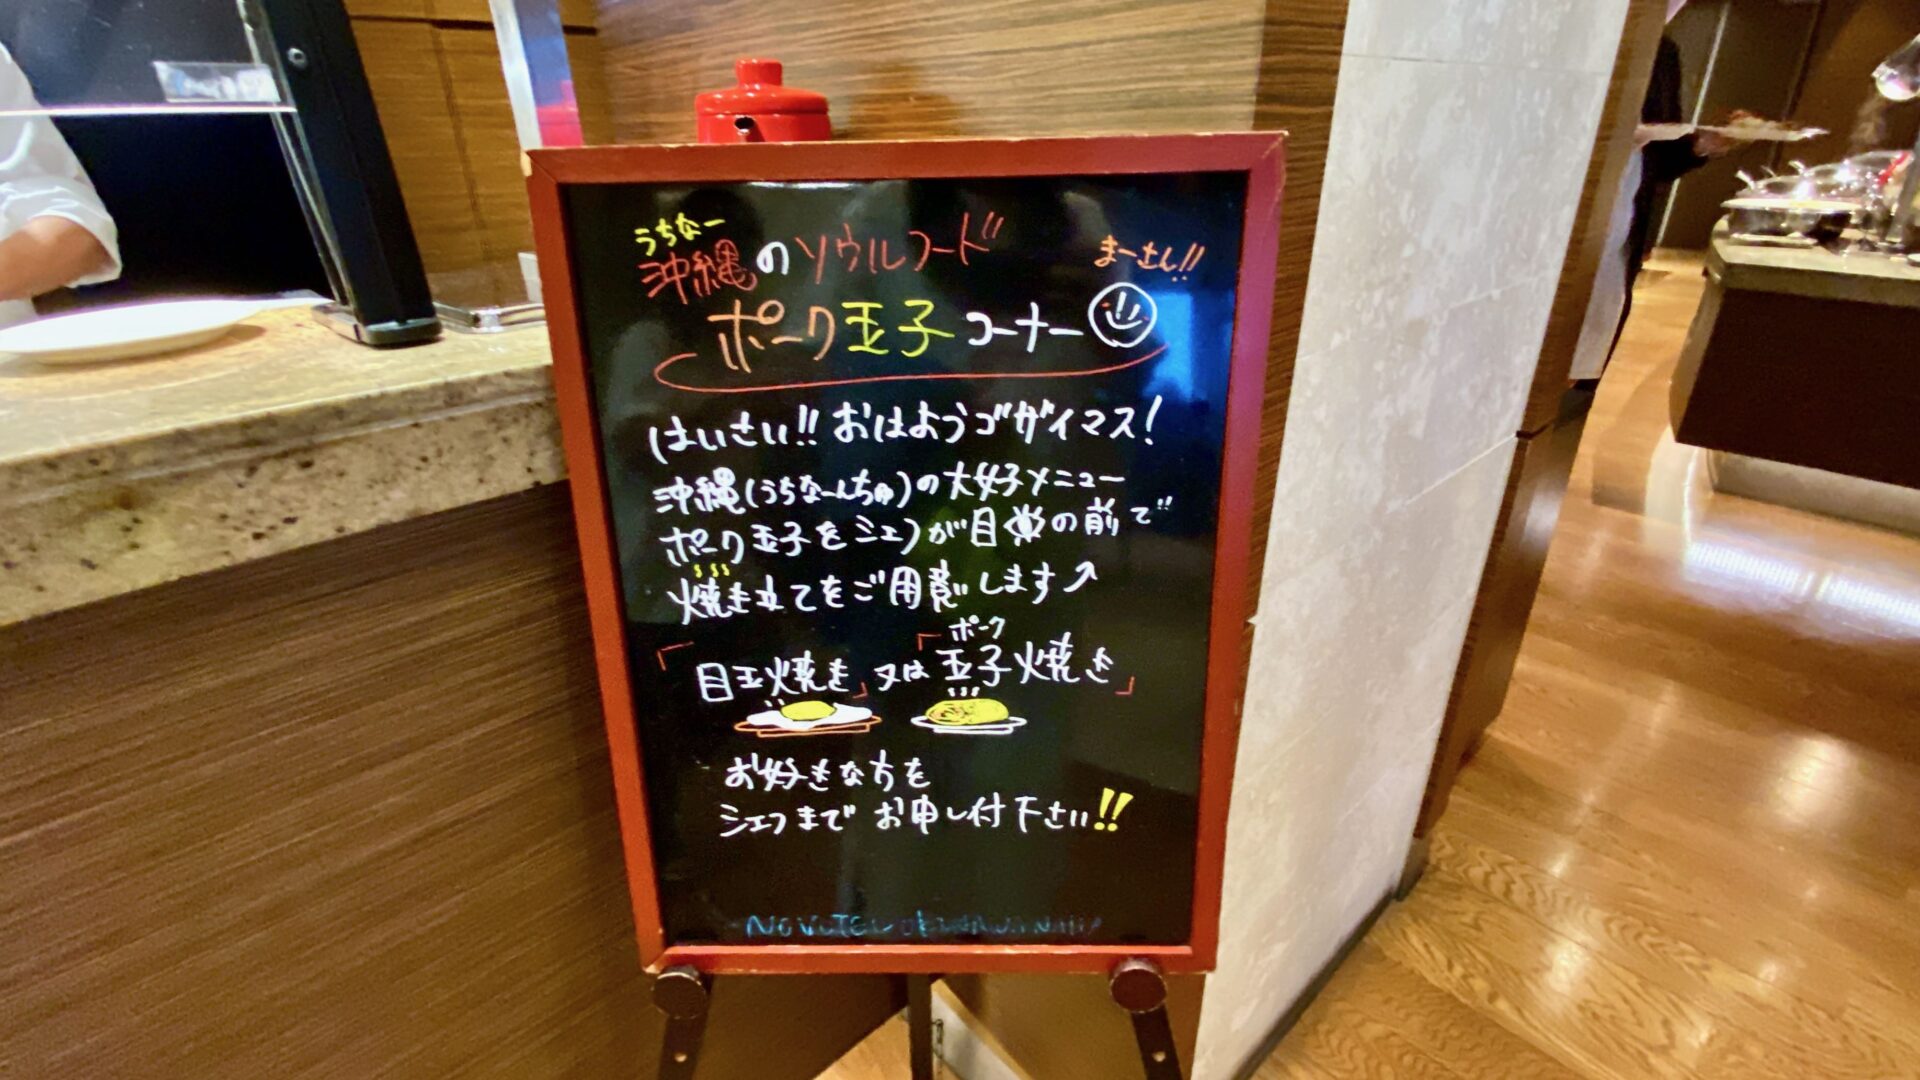 うちなー
沖縄のソウルフード
まーさん!!
ポーク玉子コーナー
はいさい!! おはようゴザイマス!
沖縄(うちなーんちゅ)の大好子メニュー
ポーク玉子をシェフが目の前で
焼き立てをご用意します↗
ポーク
「目玉焼き」又は「玉子焼き」
お好きな方を
シェフまで お申し付下さい!!
NOVOTEL OKINAWA NAHA